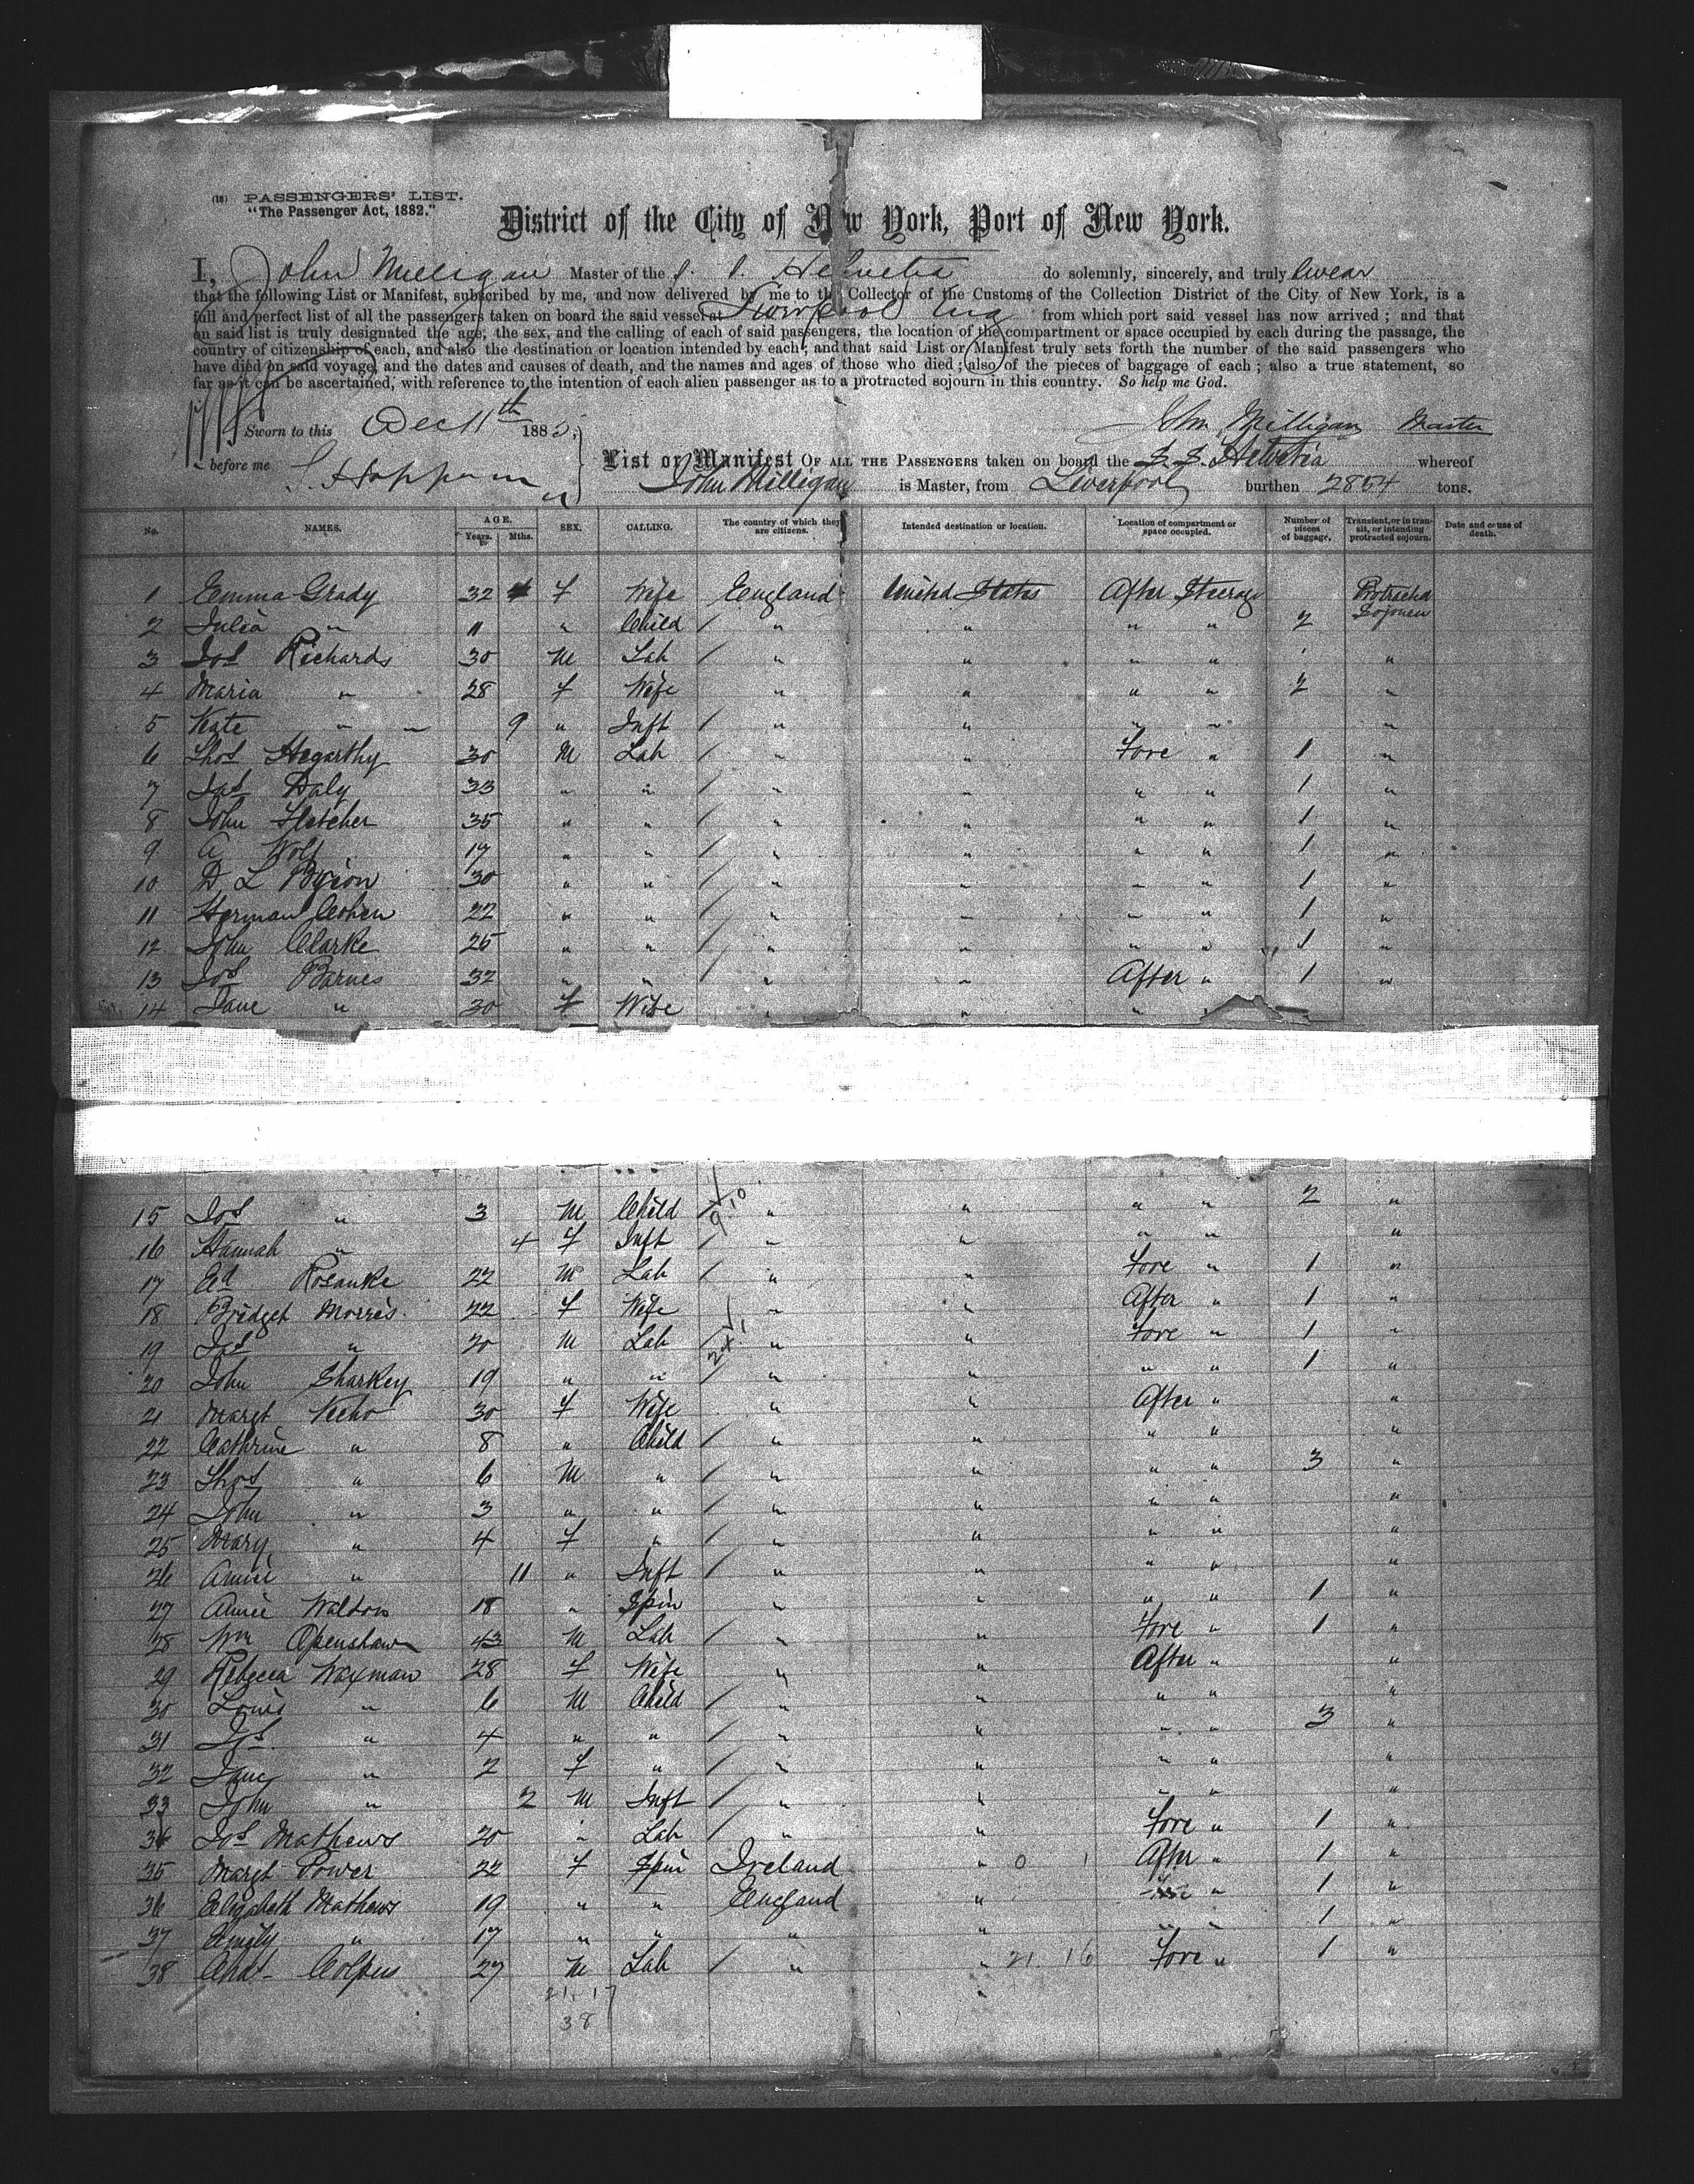 (18) PASSENGERS' LIST.
"The Passenger Act, 1882."
District of the City of New York, Port of New York.
I, John Milligan Master of the S. S. Helvetia do solemnly, sincerely, and truly swear
that the following List or Manifest, subscribed by me, and now delivered by me to the Collector of the Customs of the Collection District of the City of New York, is a
full and perfect list of all the passengers taken on board the said vessel at Liverpool Eng from which port said vessel has now arrived; and that
on said list is truly designated the age, the sex, and the calling of each of said passengers, the location of the compartment or space occupied by each during the passage, the
country of citizenship of each, and also the destination or location intended by each; and that said List or Manifest truly sets forth the number of the said passengers who
have died on said voyage, and the dates and causes of death, and the names and ages of those who died; also of the pieces of baggage of each; also a true statement, so
far as it can be ascertained, with reference to the intention of each alien passenger as to a protracted sojourn in this country. So help me God.
Sworn to this Dec 11th 188
John Milligan Master
before me
List or Manifest OF ALL THE PASSENGERS taken on board the S. S. Helvetia whereof
John Milligan is Master, from Liverpool burthen 2854 tons.
No. NAMES. AGE. Years. Mths. SEX. CALLING. The country of which they are citizens. Intended destination or location. Location of compartment or space occupied. Number of pieces of baggage. Transient, or in transit, or intending protracted sojourn. Date and cause of death.
1 Emma Grady 32 f Wife England United States After Steerage Protracted Sojourn
2 Julia " 11 " Child / " " " " 2
3 Jos Richards 30 M Lab / " " " " "
4 Maria " 28 f Wife " " " " 2 "
5 Kate " " 9 " Inft / " " " " "
6 Thos Hegarthy 30 M Lab / " " Fore " 1 "
7 Jas Daly 33 " " / " " " " 1 "
8 John Fletcher 35 " " / " " " " 1 "
9 A Wolf 17 " " / " " " " 1 "
10 D L Byron 30 " " / " " " " 1 "
11 Herman Cohen 22 " " / " " " " 1 "
12 John Clarke 25 " " / " " " " 1 "
13 Jos Barnes 32 " " / " " After " 1 "
14 Jane " 30 f Wife " " " "
15 Jos " 3 M Child / " " " " 2 "
16 Hannah " 4 f Inft / " " " " "
17 Ed Rosanke 22 M Lab / " " Fore " 1 "
18 Bridget Morris 22 f Wife " " After " 1 "
19 Jas " 20 M Lab / " " Fore " 1 "
20 John Sharkey 19 " " / " " " " 1 "
21 Margt Keho 30 f Wife " " After " "
22 Cathrine " 8 " Child / " " " " "
23 Thos " 6 M " / " " " " 3 "
24 John " 3 " " / " " " " "
25 Mary " 4 f " / " " " " "
26 Annie " 11 " Inft / " " " " "
27 Annie Waldron 18 " Spin " " " " 1 "
28 Wm Openshaw 43 M Lab / " " Fore " 1 "
29 Rebecca Waxman 28 f Wife " " After " "
30 Louis " 6 M Child / " " " " "
31 Js. " 4 " " / " " " " 3 "
32 Jane " 2 f " / " " " " "
33 John " 2 M Inft / " " " " "
34 Jos Mathews 20 " Lab / " " Fore " 1 "
35 Margt Power 22 f Spin Ireland " 0 1 After " 1 "
36 Elizabeth Mathews 19 " " England " " 1 "
37 Emily " 17 " " " " " " 1 "
38 Chas Colpus 27 M Lab / " " 21. 16 Fore " 1 "
21. 17
38